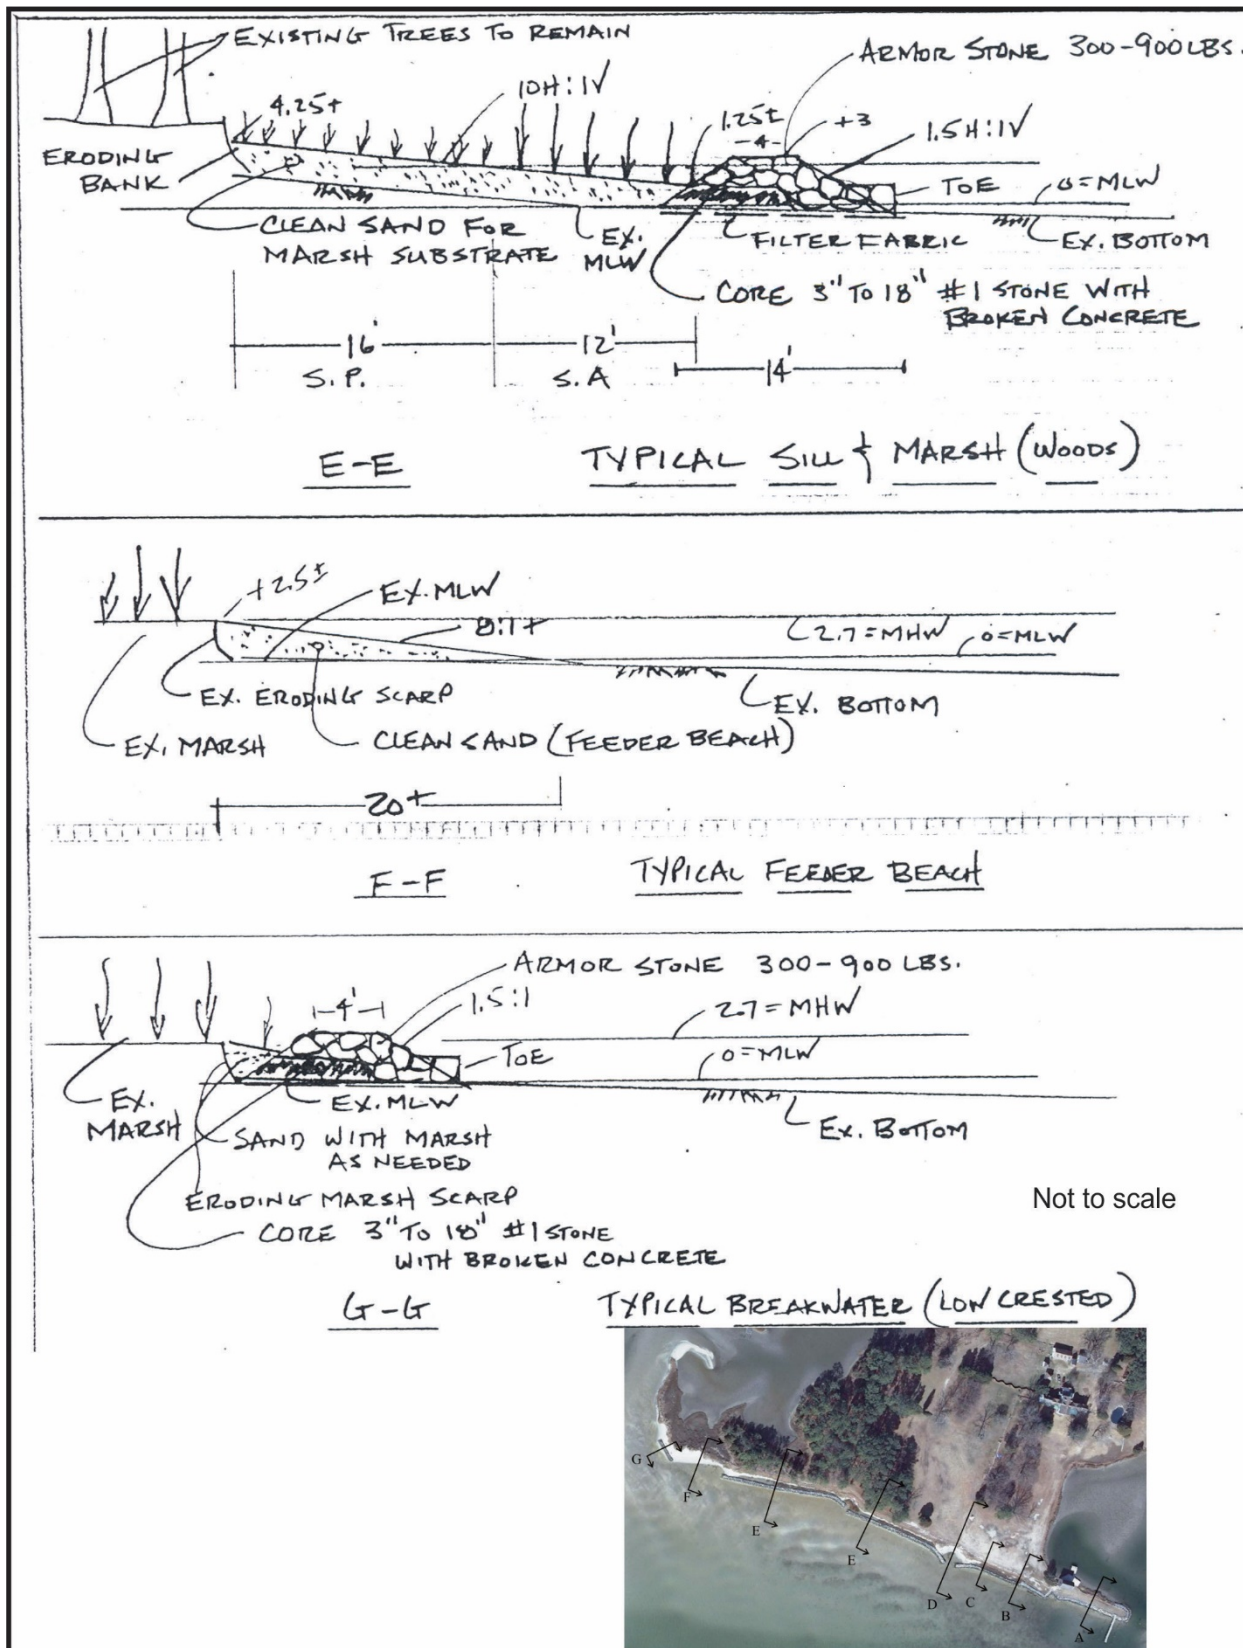 EXISTING TREES TO REMAIN
ARMOR STONE 300-900LBS.
4.25±
10H:1V
1.25±
4
+3
1.5H:1V
ERODING
BANK
TOE
0=MLW
CLEAN SAND FOR
MARSH SUBSTRATE
EX.
MLW
FILTER FABRIC
EX. BOTTOM
CORE 3" TO 18" #1 STONE WITH
BROKEN CONCRETE
16'
12'
14'
S.P.
S.A
E-E
TYPICAL SILL & MARSH (WOODS)
+2.5±
EX. MLW
8:1±
2.7=MHW
0=MLW
EX. ERODING SCARP
EX. BOTTOM
EX. MARSH
CLEAN SAND (FEEDER BEACH)
20±
F-F
TYPICAL FEEDER BEACH
ARMOR STONE 300-900 LBS.
4'
1.5:1
2.7=MHW
TOE
0=MLW
EX.
MARSH
EX. MLW
EX. BOTTOM
SAND WITH MARSH
AS NEEDED
ERODING MARSH SCARP
CORE 3" TO 18" #1 STONE
WITH BROKEN CONCRETE
Not to scale
G-G
TYPICAL BREAKWATER (LOW CRESTED)
G
F
E
E
D
C
B
A